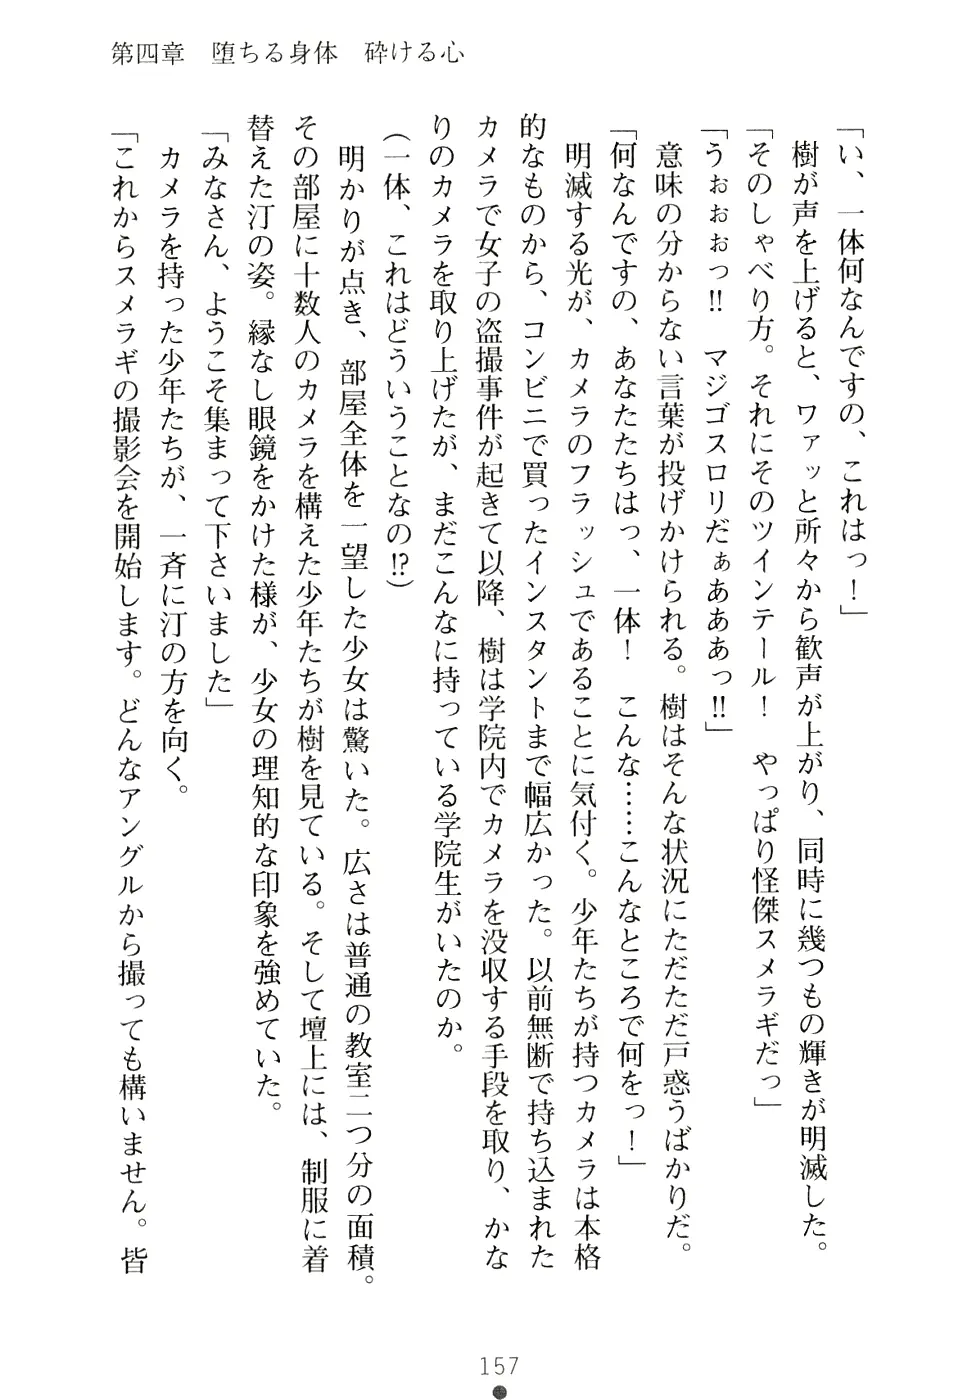 第四章　堕ちる身体　砕ける心
「い、一体何なんですの、これはっ！」
　樹が声を上げると、ワァッと所々から歓声が上がり、同時に幾つもの輝きが明滅した。
「そのしゃべり方。それにそのツインテール！　やっぱり怪傑スメラギだっ」
「うぉぉぉっ!!　マジゴスロリだぁあああっ!!」
　意味の分からない言葉が投げかけられる。樹はそんな状況にただただ戸惑うばかりだ。
「何なんですの、あなたたちはっ、一体！　こんな……こんなところで何をっ！」
　明滅する光が、カメラのフラッシュであることに気付く。少年たちが持つカメラは本格
的なものから、コンビニで買ったインスタントまで幅広かった。以前無断で持ち込まれた
カメラで女子の盗撮事件が起きて以降、樹は学院内でカメラを没収する手段を取り、かな
りのカメラを取り上げたが、まだこんなに持っている学院生がいたのか。
（一体、これはどういうことなの!?）
　明かりが点き、部屋全体を一望した少女は驚いた。広さは普通の教室二つ分の面積。
その部屋に十数人のカメラを構えた少年たちが樹を見ている。そして壇上には、制服に着
替えた汀の姿。縁なし眼鏡をかけた様が、少女の理知的な印象を強めていた。
「みなさん、ようこそ集まって下さいました」
　カメラを持った少年たちが、一斉に汀の方を向く。
「これからスメラギの撮影会を開始します。どんなアングルから撮っても構いません。皆
157